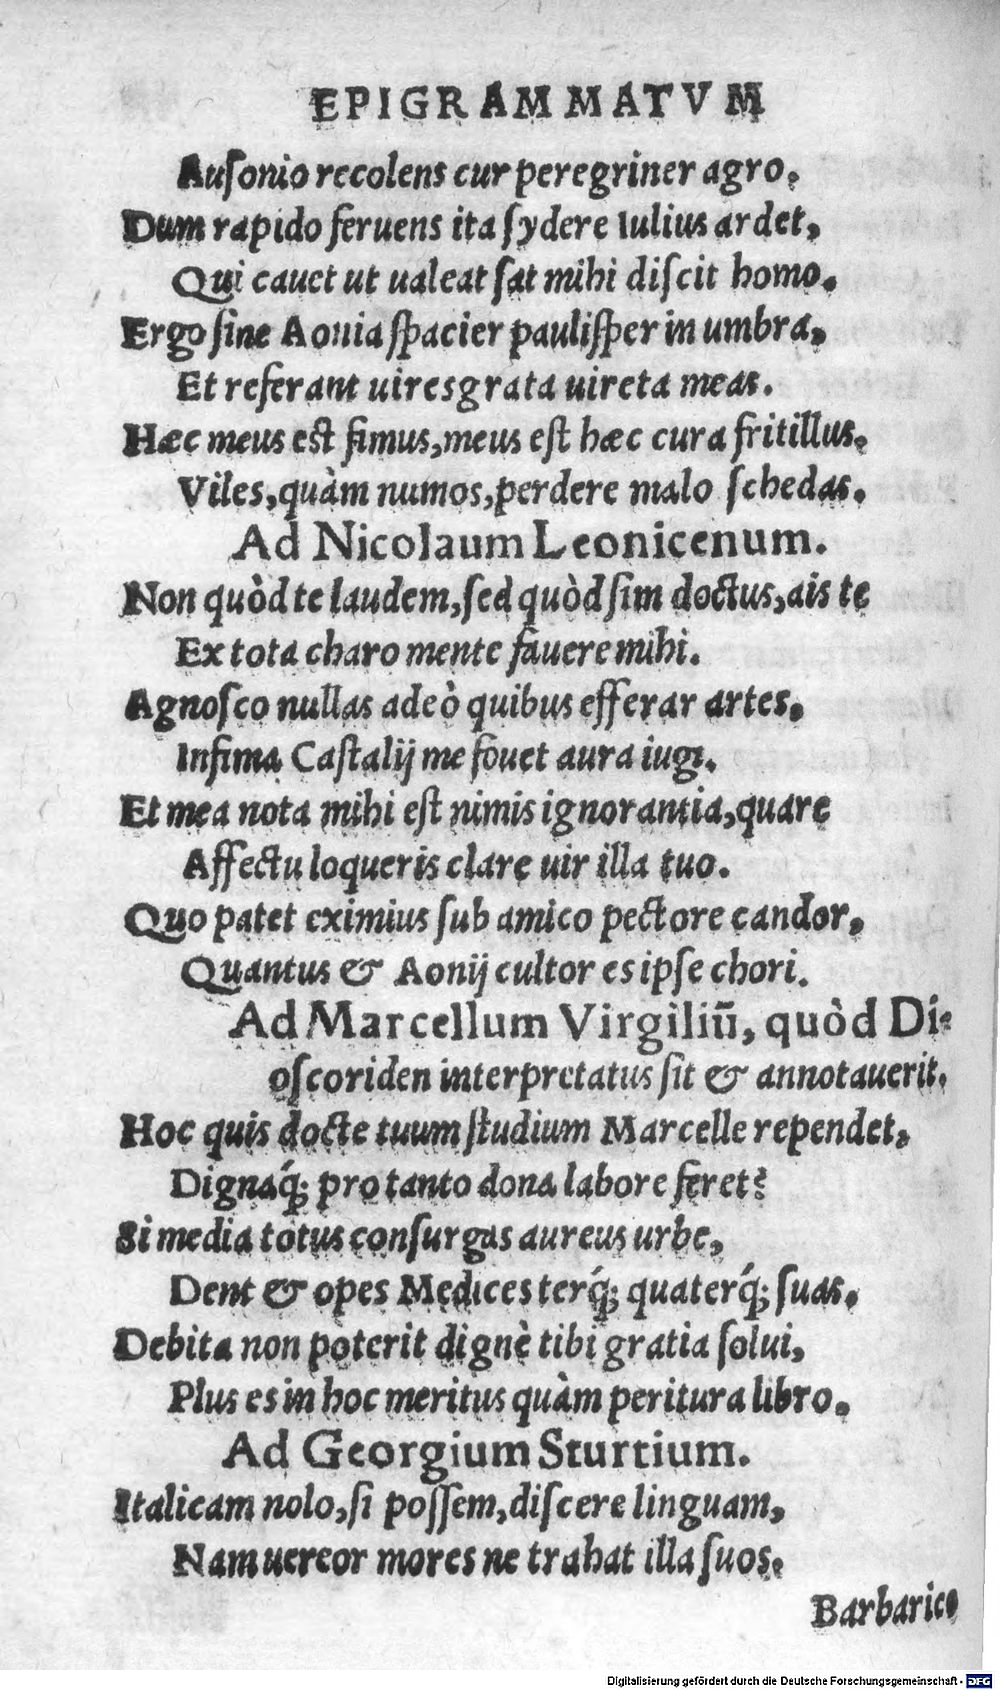 EPIGRAMMATVM
Auſonio recolens cur peregriner agro.
Dum rapido feruens ita ſydere Iulius ardet,
Qui cauet ut ualeat ſat mihi diſcit homo.
Ergo ſine Aonia ſpacier pauliſper in umbra,
Et referant uires grata uireta meas.
Hæc meus est fimus, meus eſt hæc cura fritillus,
Viles, quàm numos, perdere malo ſchedas.
Ad Nicolaum Leonicenum.
Non quòd te laudem, ſed quòd ſim doctus, ais te
Ex tota charo mente fauere mihi.
Agnoſco nullas adeò quibus efferar artes,
Infima Caſtalij me fouet aura iugi.
Et mea nota mihi eſt nimis ignorantia, quare
Affectu loqueris clare uir illa tuo.
Quo patet eximius ſub amico pectore candor,
Quantus & Aonij cultor es ipſe chori.
Ad Marcellum Virgiliū, quòd Di-
oſcoriden interpretatus ſit & annotauerit.
Hoc quis docte tuum ſtudium Marcelle rependet,
Dignaq́; pro tanto dona labore feret?
Si media totus conſurgas aureus urbe,
Dent & opes Medices terq́; quaterq́; ſuas.
Debita non poterit dignè tibi gratia ſolui,
Plus es in hoc meritus quàm peritura libro.
Ad Georgium Sturtium.
Italicam nolo, ſi poſſem, diſcere linguam,
Nam uereor mores ne trahat illa ſuos.
Barbarico
Digitalisierung gefördert durch die Deutsche Forschungsgemeinschaft - DFG